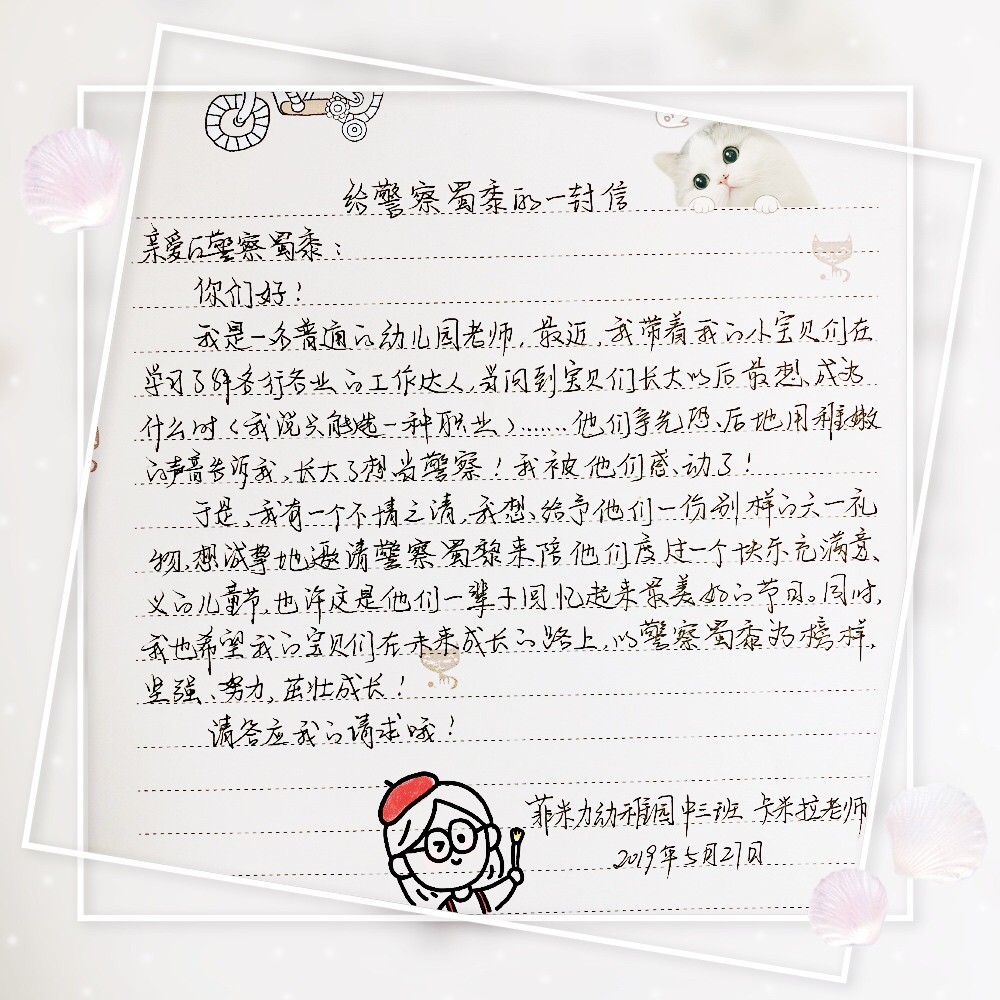 给警察蜀黍的一封信
亲爱的警察蜀黍：
你们好！
我是一名普通的幼儿园老师，最近，我带着我的小宝贝们在
学习了解各行各业的工作达人，当问到宝贝们长大以后最想成为
什么时（我说只能选一种职业）……他们争先恐后地用稚嫩
的声音告诉我，长大了想当警察！我被他们感动了！
于是，我有一个不情之请，我想给予他们一份别样的六一礼
物，想诚挚地邀请警察蜀黎来陪他们度过一个快乐充满意
义的儿童节，也许这是他们一辈子回忆起来最美好的节日。同时，
我也希望我的宝贝们在未来成长的路上，以警察蜀黍为榜样，
坚强、努力，茁壮成长！
请答应我的请求哦！
菲米力幼稚园中三班 卡米拉老师
2019年5月27日